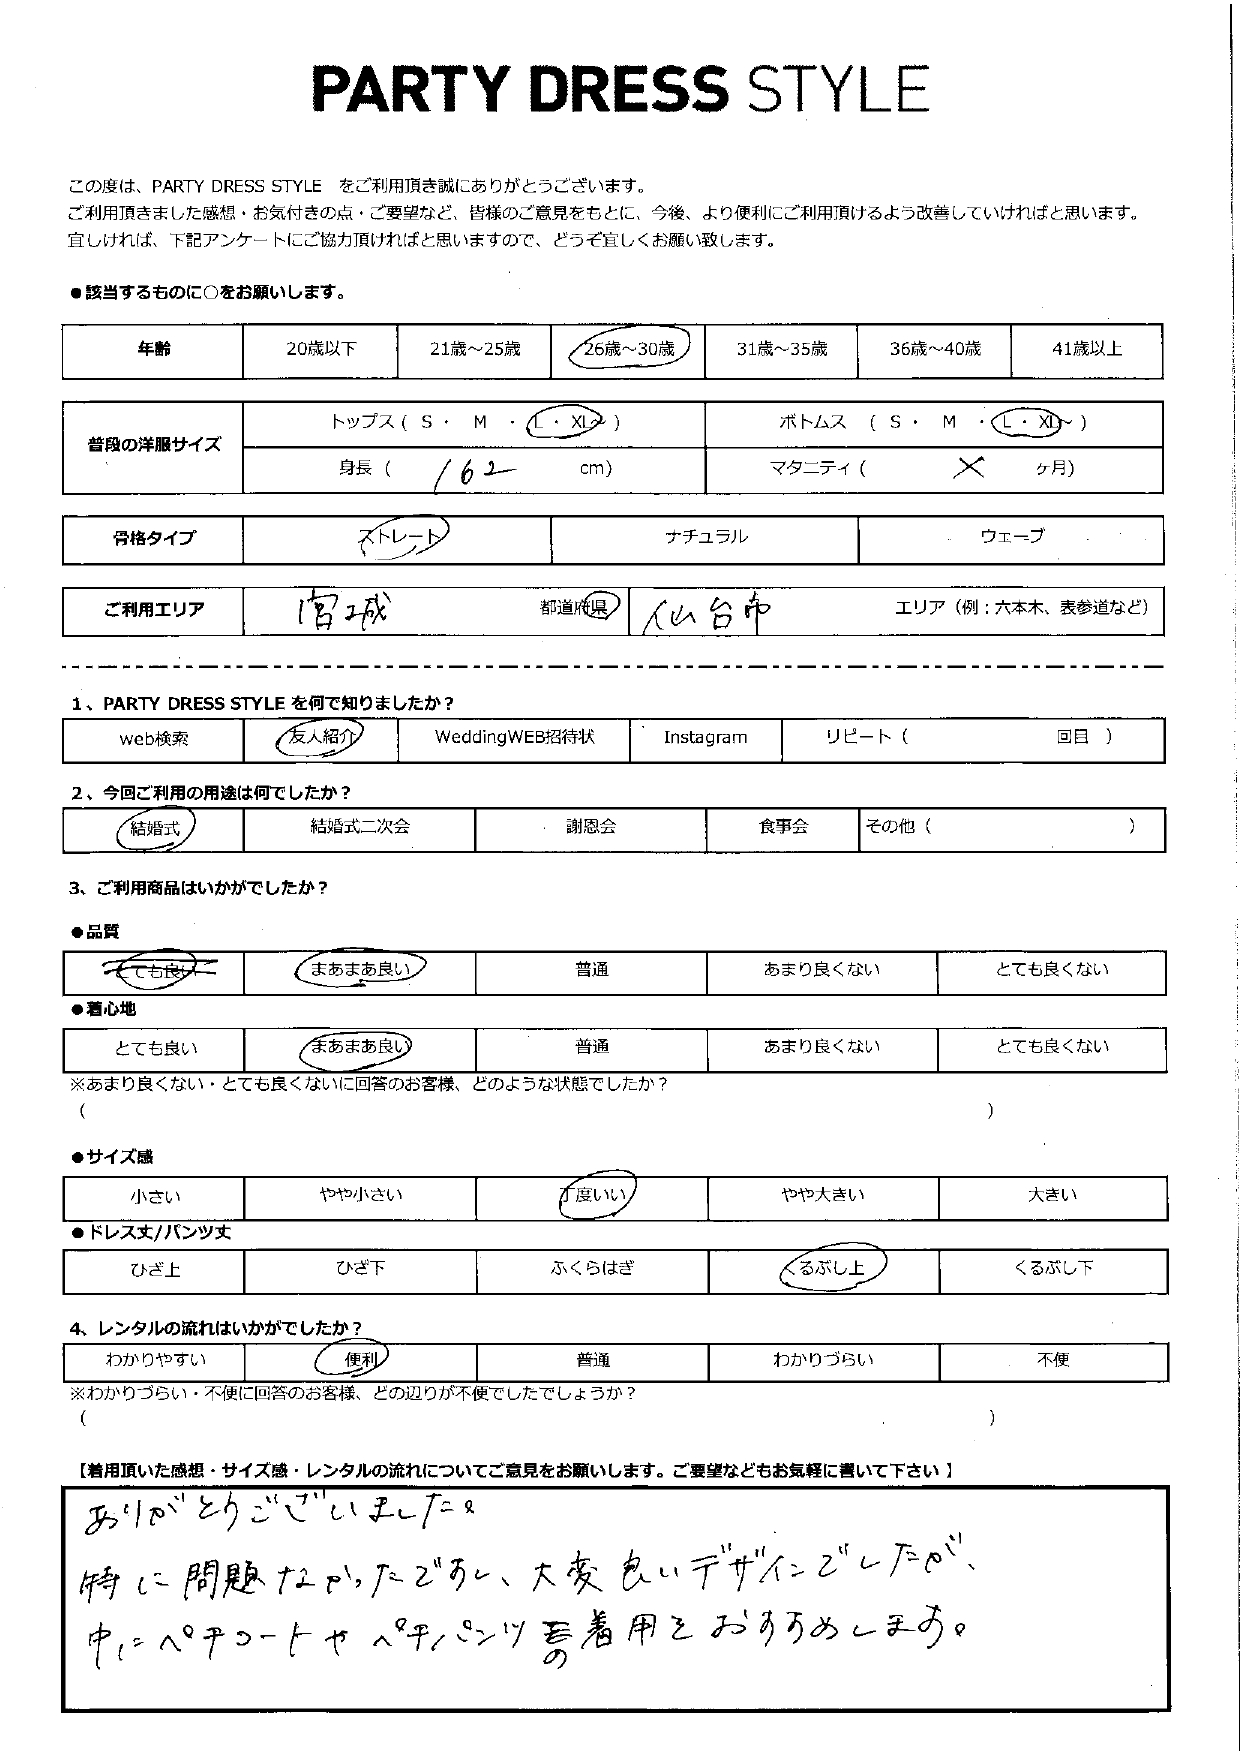 PARTY DRESS STYLE
この度は、PARTY DRESS STYLE をご利用頂き誠にありがとうございます。
ご利用頂きました感想・お気付きの点・ご要望など、皆様のご意見をもとに、今後、より便利にご利用頂けるよう改善していければと思います。
宜しければ、下記アンケートにご協力頂ければと思いますので、どうぞ宜しくお願い致します。
●該当するものに○をお願いします。
年齢 20歳以下 21歳～25歳 26歳～30歳 31歳～35歳 36歳～40歳 41歳以上
普段の洋服サイズ トップス ( S ・ M ・ L ・ XL～ ) ボトムス ( S ・ M ・ L ・ XL～ )
身長 ( 162 cm) マタニティ ( × ヶ月)
骨格タイプ ストレート ナチュラル ウェーブ
ご利用エリア 宮城 都道府県 仙台市 エリア（例：六本木、表参道など）
1、PARTY DRESS STYLE を何で知りましたか？
web検索 友人紹介 WeddingWEB招待状 Instagram リピート（ 回目 ）
2、今回ご利用の用途は何でしたか？
結婚式 結婚式二次会 謝恩会 食事会 その他（ ）
3、ご利用商品はいかがでしたか？
●品質
とても良い まあまあ良い 普通 あまり良くない とても良くない
●着心地
とても良い まあまあ良い 普通 あまり良くない とても良くない
※あまり良くない・とても良くないに回答のお客様、どのような状態でしたか？
（ ）
●サイズ感
小さい やや小さい 丁度いい やや大きい 大きい
●ドレス丈/パンツ丈
ひざ上 ひざ下 ふくらはぎ くるぶし上 くるぶし下
4、レンタルの流れはいかがでしたか？
わかりやすい 便利 普通 わかりづらい 不便
※わかりづらい・不便に回答のお客様、どの辺りが不便でしたでしょうか？
（ ）
【着用頂いた感想・サイズ感・レンタルの流れについてご意見をお願いします。ご要望などもお気軽に書いて下さい 】
ありがとうございました。
特に問題なかったですし、大変良いデザインでしたが、
中にペチコートやペチパンツの着用をおすすめします。